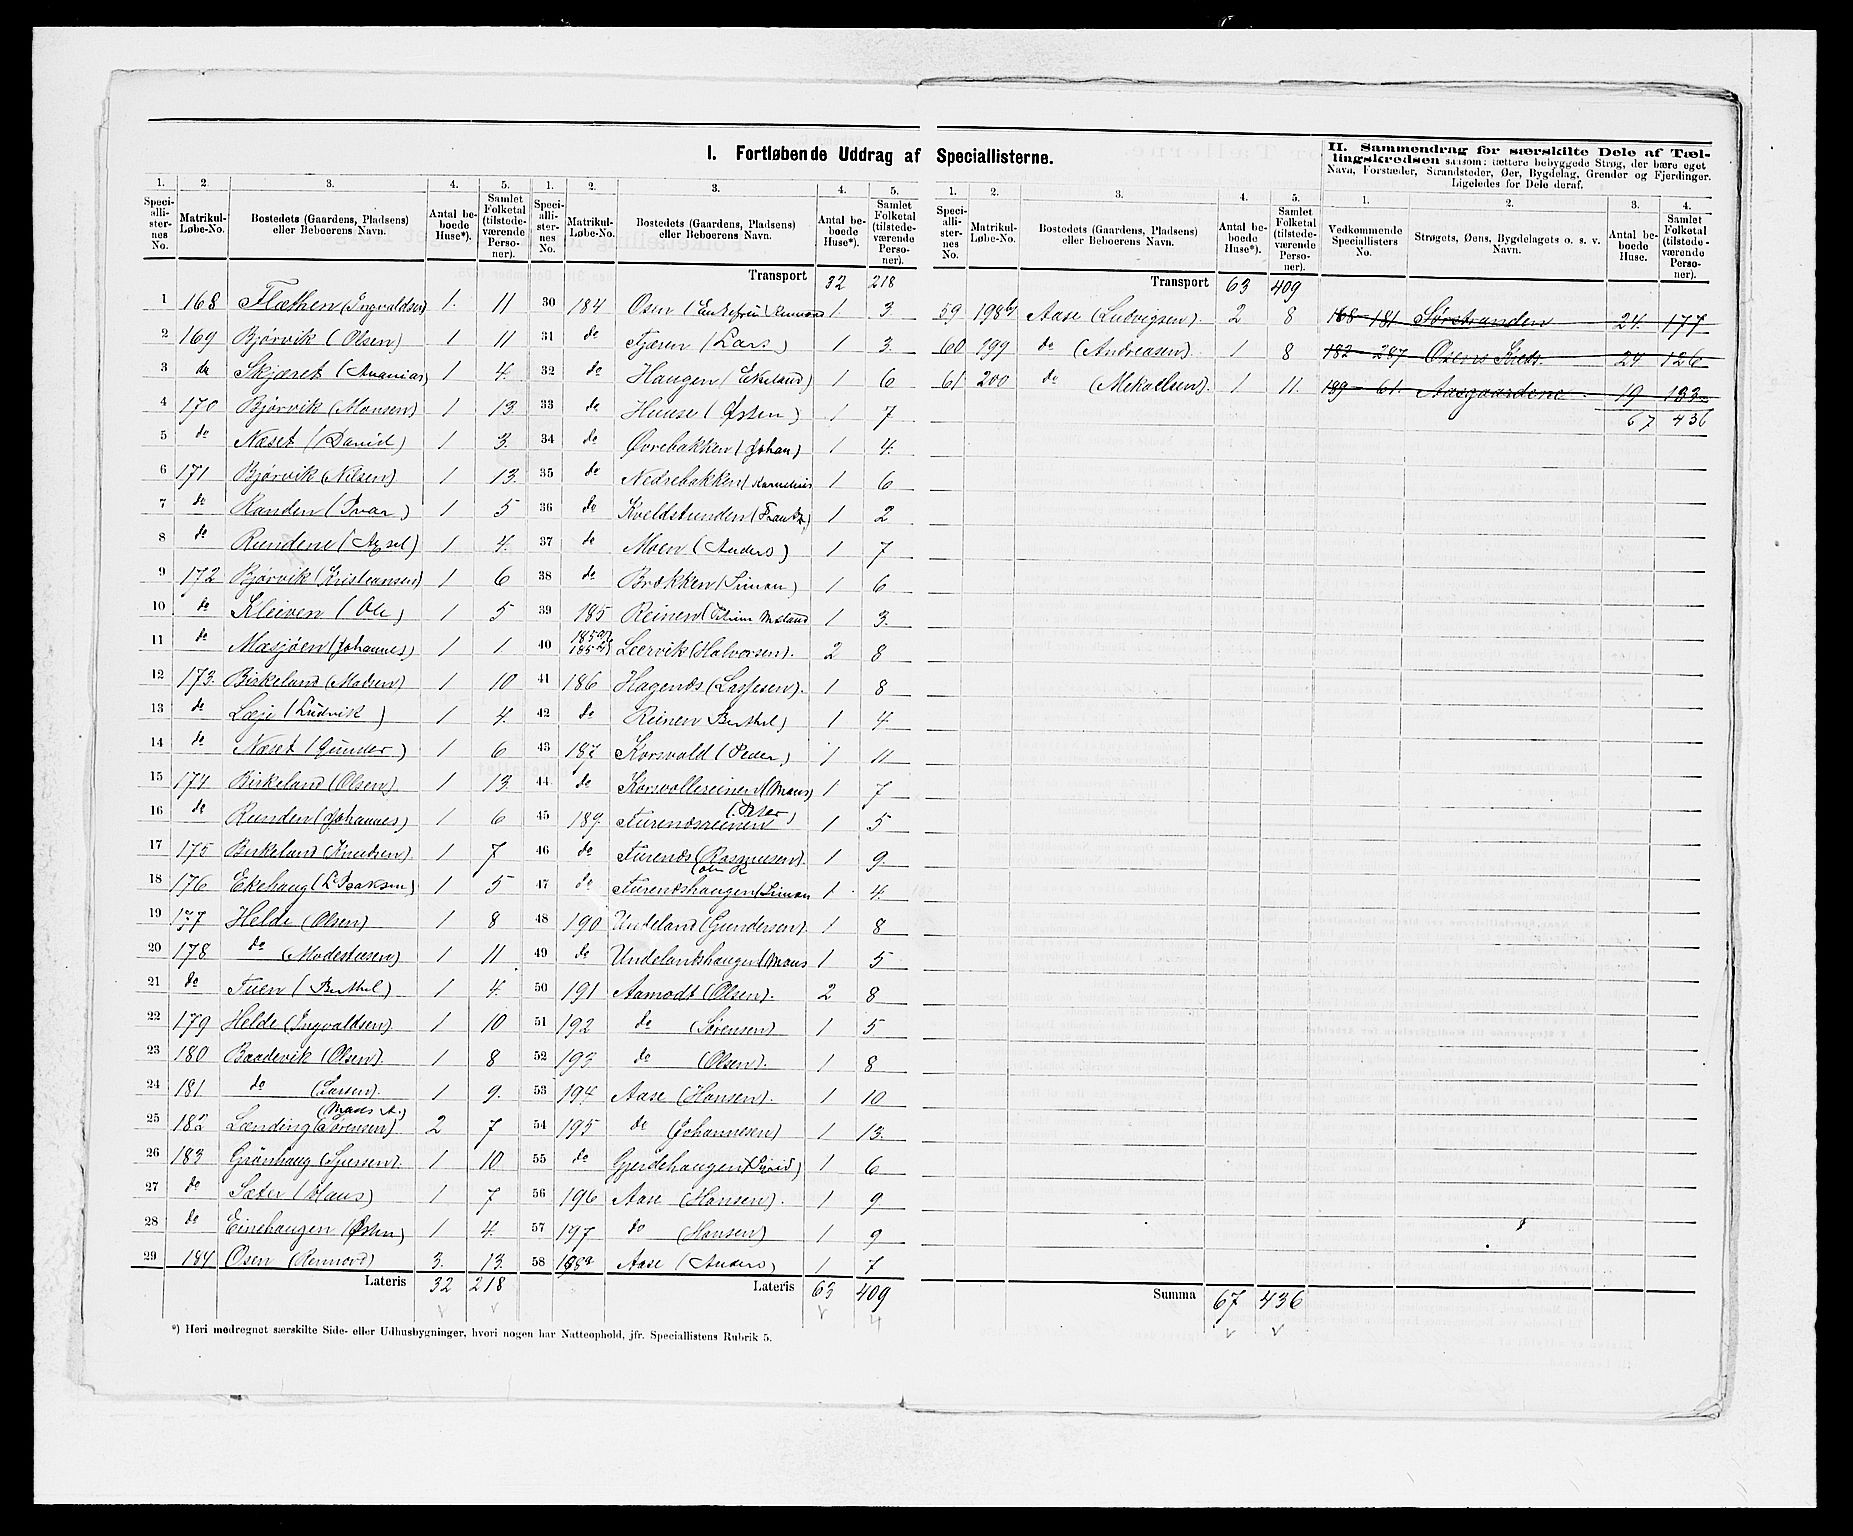 I. Fortløbende Uddrag af Speciallisterne.
1. 2. 3. 4. 5.
Speciallisternes No. Matrikul-Løbe-No. Bostedets (Gaardens, Pladsens) eller Beboerens Navn. Antal beboede Huse*). Samlet Folketal (tilstedeværende Personer).
1 168 Flæthen (Ingvaldsen) 1. 11
2 169 Bjørvik (Olsen) 1 11
3 do Skjæret (Ananias) 1 4.
4 170 Bjørvik (Monsen) 1 13.
5 do Næset (David) 1 3.
6 171 Bjørvik (Nilsen) 1 13.
7 do Randen (Ivar) 1 5
8 do Rundene (Axsel) 1 4.
9 172 Bjørvik (Kristiansen) 1 6
10 do Kleiven (Ole) 1 5
11 do Masjøen (Johannes) 1 1
12 173. Birkeland (Madsen) 1 10
13 do Læje (Ludvik) 1 4.
14 do Næset (Gunder) 1 6
15 174 Birkeland (Olsen) 1 13.
16 do Runden (Johannes) 1 6
17 175 Birkeland (Knudsen) 1 7
18 176 Ekehaug (L. Isaksen) 1 5
19 177 Helde (Olsen) 1 8
20 178 do (Modestusen) 1 11
21 do Tuen (Berthel) 1 4.
22 179 Helde (Ingvaldsen) 1 10
23 180 Baadevik (Olsen) 1 8
24 181 do (Larsen). 1 9.
25 182 Lænding (Sørensen) (Mads A.) 2 7
26 183 Grönhaug (Sjursen). 1 10
27 do Sæter (Klaus) 1 7
28 do Einehaugen (Østen) 1 4.
29 184 Osen (Renmord) 3. 13.
Lateris 32 218
*) Heri medregnet særskilte Side- eller Udhusbygninger, hvori nogen har Natteophold, jfr. Speciallistens Rubrik 5.
1. 2. 3. 4. 5.
Speciallisternes No. Matrikul-Løbe-No. Bostedets (Gaardens, Pladsens) eller Beboerens Navn. Antal beboede Huse*). Samlet Folketal (tilstedeværende Personer).
Transport 32 218
30 184 Osen (Enkefru Renmord 1. 3.
31 do Fjæren (Lars) 1 3.
32 do Haugen (Ekeland) 1 6
33 do Huuse (Østen) 1 7
34 do Øvrebakken (Johan) 1 4.
35 do Nedrebakken (Kornelius 1 6
36 do Kveldstunden (Frantz.) 1 2
37 do Moen (Anders) 1 7
38 do Brækken (Simon) 1 6
39 185 Reinen 1 3.
40 185a) 185b) Leervik (Halvorsen). 2 8
41 186 Hagenæs (Lassesen). 1 8
42 do Reinen Berthel) 1 4.
43 187 Korsvold (Peder) 1 11
44 do Korsvollsreinen (Mons) 1 7
45 189. Furenæsreinen (Peter) 1 5
46 do Furenæs (Rasmusen). 1 9.
47 do Furenæshaugen (Simon 1 4.
48 190 Undeland (Gundersen). 1 8
49 do Undelandshaugen (Mons 1 5
50 191 Aamodt (Olsen). 2 8
51 192 do (Sørensen) 1 5
52 193 do (Olsen). 1 8
53 194. Aase (Hansen). 1 10
54 195 do (Johannesen) 1 13.
55 do Gjerdehaugen (Sigrid) 1 6
56 196 Aase (Hansen). 1 9
57 197 do (Hansen) 1 9
58 198a Aase (Anders) 1 7
Lateris 63 409
1. 2. 3. 4. 5.
Speciallisternes No. Matrikul-Løbe-No. Bostedets (Gaardens, Pladsens) eller Beboerens Navn. Antal beboede Huse*). Samlet Folketal (tilstedeværende Personer).
Transport 63 409
59 198b) Aase (Ludvigsen). 2 8
60 199 do (Andreasen). 1 8
61 200 do (Mekaelsen). 1 11.
Summa 67 436
II. Sammendrag for særskilte Dele af Tællingskredsen saasom: tættere bebyggede Strøg, der bære eget
Navn, Forstæder, Strandsteder, Øer, Bygdelag, Grender og Fjerdinger.
Ligeledes for Dele deraf.
1. 2. 3. 4.
Vedkommende Speciallisters No. Strøgets, Øens, Bygdelagets o. s. v. Navn. Antal beboede Huse. Samlet Folketal (tilstedeværende Personer).
168 - 181 Sørstranden 24. 177
182 - 287 Osens Kreds. 24 126
189 - 61. Aasgaardene 19 133
67 436